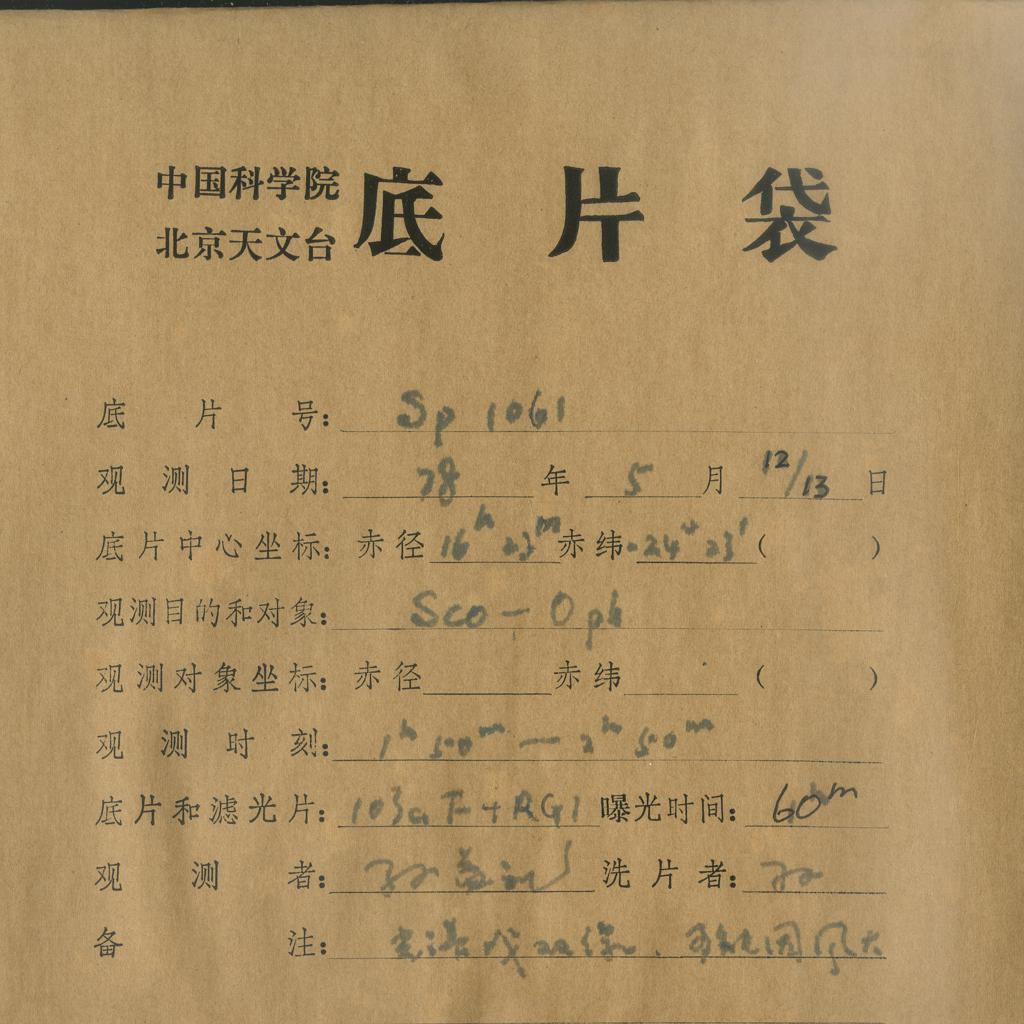 中国科学院
北京天文台
底片袋
底片号: Sp 1061
观测日期: 78 年 5 月 12/13 日
底片中心坐标: 赤径 16ʰ 23ᵐ 赤纬 -24° 23′ ( )
观测目的和对象: Sco — Oph
观测对象坐标: 赤径 赤纬 ( )
观测时刻: 1ʰ 50ᵐ — 2ʰ 50ᵐ
底片和滤光片: 103aF+RG1 曝光时间: 60ᵐ
观测者: 孙 洗片者: 孙
备注: 光谱成双像、可能因风大